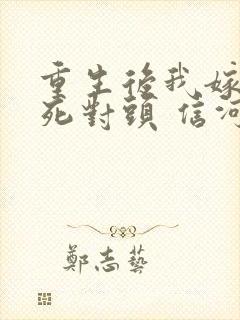 重生後我嫁
死對頭 信河
鄭志藝